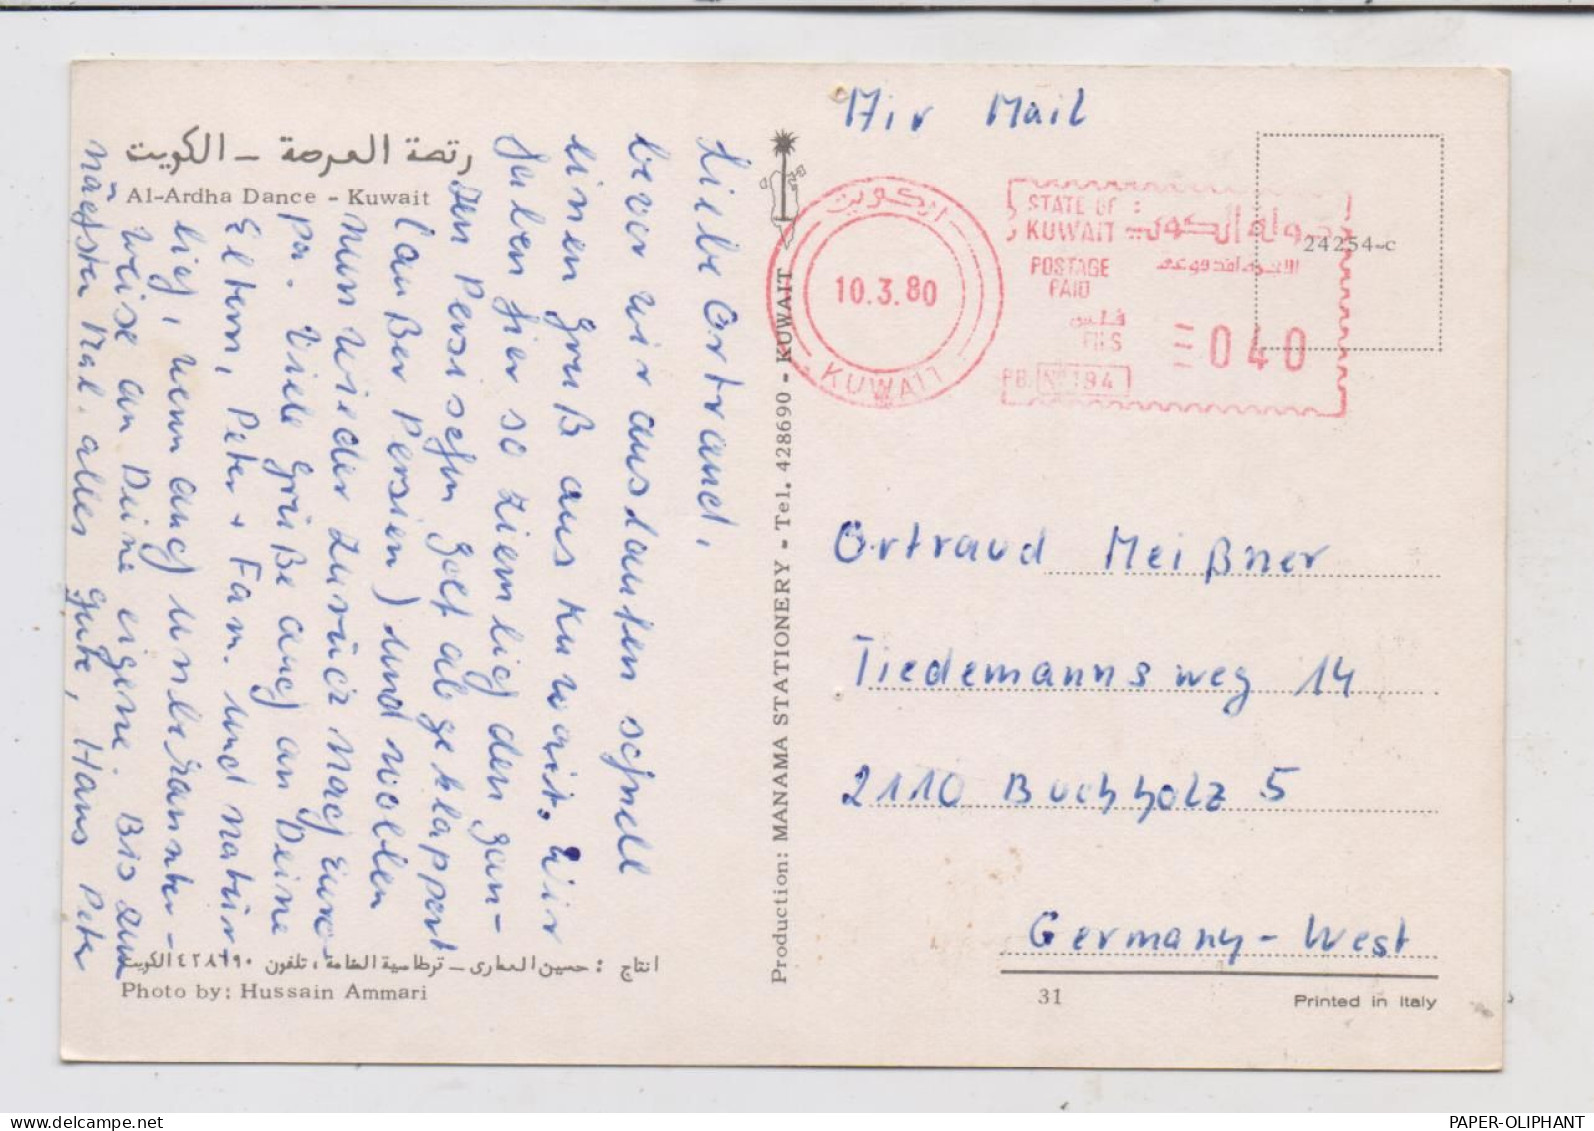 Air Mail
رقصة العرضة - الكويت
Al-Ardha Dance - Kuwait
Liebe Ortraud,
bevor wir ausлaufen schnell
einen Gruß aus Kuwait. Wir
haben hier so ziemlich den gan-
zen Persischen Golf abgeklappert
(außer Persien) und wollen
nun wieder zurück nach Euro-
pa. Viele Grüße auch an Deine
Eltern, Peter + Fam. und natür-
lich, wenn auch unbekannter-
weise an Deine eigene. Bis zum
nächsten Mal. alles Gute, Hans Peter
انتاج : حسين العماري - قرطاسية المنامة ، تلفون ٤٢٨٦٩٠ الكويت
Photo by: Hussain Ammari
Production: MANAMA STATIONERY - Tel. 428690 - KUWAIT
الكويت
10.3.80
KUWAIT
STATE OF KUWAIT
دولة الكويت
POSTAGE PAID
فلس
FILS
040
PB. No 194
24254-c
Ortraud Meißner
Tiedemannsweg 14
2110 Buchholz 5
Germany-West
31
Printed in Italy
PAPER-OLIPHANT